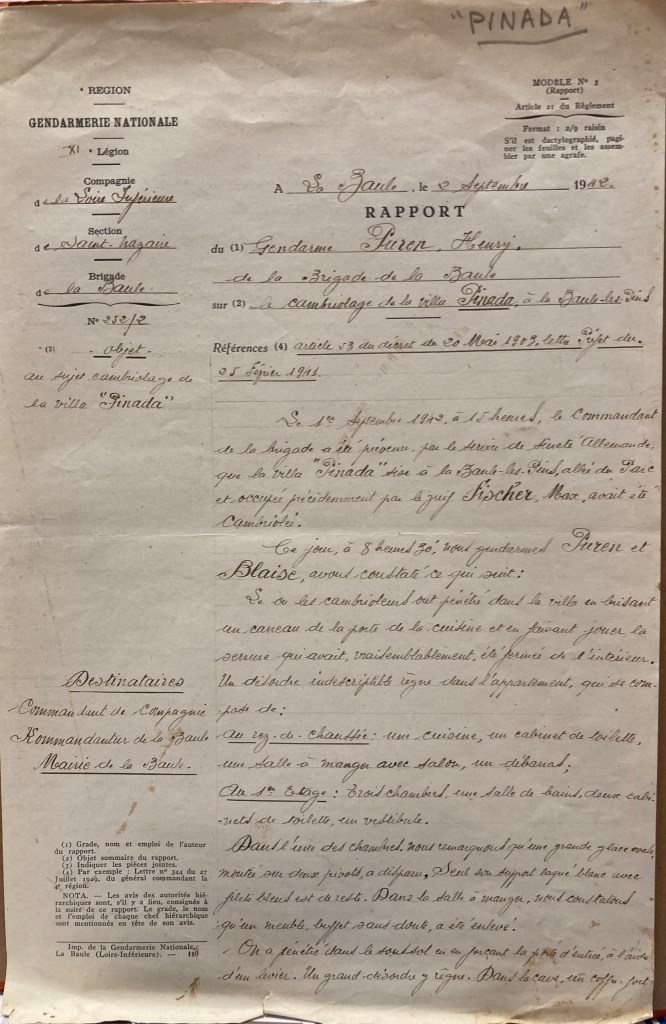 "PINADA"
* REGION
GENDARMERIE NATIONALE
XI * Légion
Compagnie
de la Loire Inférieure
Section
de Saint-Nazaire
Brigade
de la Baule
N° 252/2
* (3) - objet -
au sujet cambriolage de
la villa "Pinada"
MODÈLE N° 3
(Rapport)
Article 21 du Règlement
Format : 2/9 raisin
S'il est dactylographié, pagi-
ner les feuilles et les assem-
bler par une agrafe.
A La Baule, le 2 Septembre 1942.
RAPPORT
du (1) Gendarme Puren, Henry,
de la Brigade de la Baule
sur (2) le cambriolage de la villa Pinada, à la Baule-les-Pins
Références (4) article 53 du décret du 20 Mai 1903, lettre Préfet du
25 Février 1941.
Le 1er Septembre 1942, à 15 heures, le Commandant
de la brigade a été prévenu par le service de sureté Allemande,
que la villa "Pinada" sise à la Baule-les-Pins, allée du Parc
et occupée précédemment par le juif Fischer, Max, avait été
cambriolée.
Ce jour, à 8 heures 30', nous gendarmes Puren et
Blaise, avons constaté ce qui suit :
Le ou les cambrioleurs ont pénétré dans la villa en brisant
un carreau de la porte de la cuisine et en faisant jouer la
serrure qui avait, vraisemblablement, été fermée de l'intérieur.
Un désordre indescriptible règne dans l'appartement, qui se com-
pose de :
Au rez-de-chaussée : une cuisine, un cabinet de toilette,
une salle à manger avec salon, un débarras ;
Au 1er Etage : Trois chambres, une salle de bains, deux cabi-
nets de toilette, un vestibule.
Dans l'une des chambres, nous remarquons qu'une grande glace ovale,
montée sur deux pivots, a disparu. Seul son support laqué blanc avec
filets bleus est de reste. Dans la salle à manger, nous constatons
qu'un meuble, buffet sans doute, a été enlevé.
On a pénétré dans le sous-sol en en forçant la porte d'entrée, à l'aide
d'un levier. Un grand désordre y règne. Dans la cave, un coffre-fort
Destinataires
Commandant de Compagnie
Kommandantur de la Baule
Mairie de la Baule.
(1) Grade, nom et emploi de l'auteur
du rapport.
(2) Objet sommaire du rapport.
(3) Indiquer les pièces jointes.
(4) Par exemple : Lettre n° 344 du 27
Juillet 1929, du général commandant la
4e région.
NOTA. — Les avis des autorités hié-
rarchiques sont, s'il y a lieu, consignés à
la suite de ce rapport. Le grade, le nom
et l'emploi de chaque chef hiérarchique
sont mentionnés en tête de son avis.
Imp. de la Gendarmerie Nationale,
La Baule (Loire-Inférieure). —